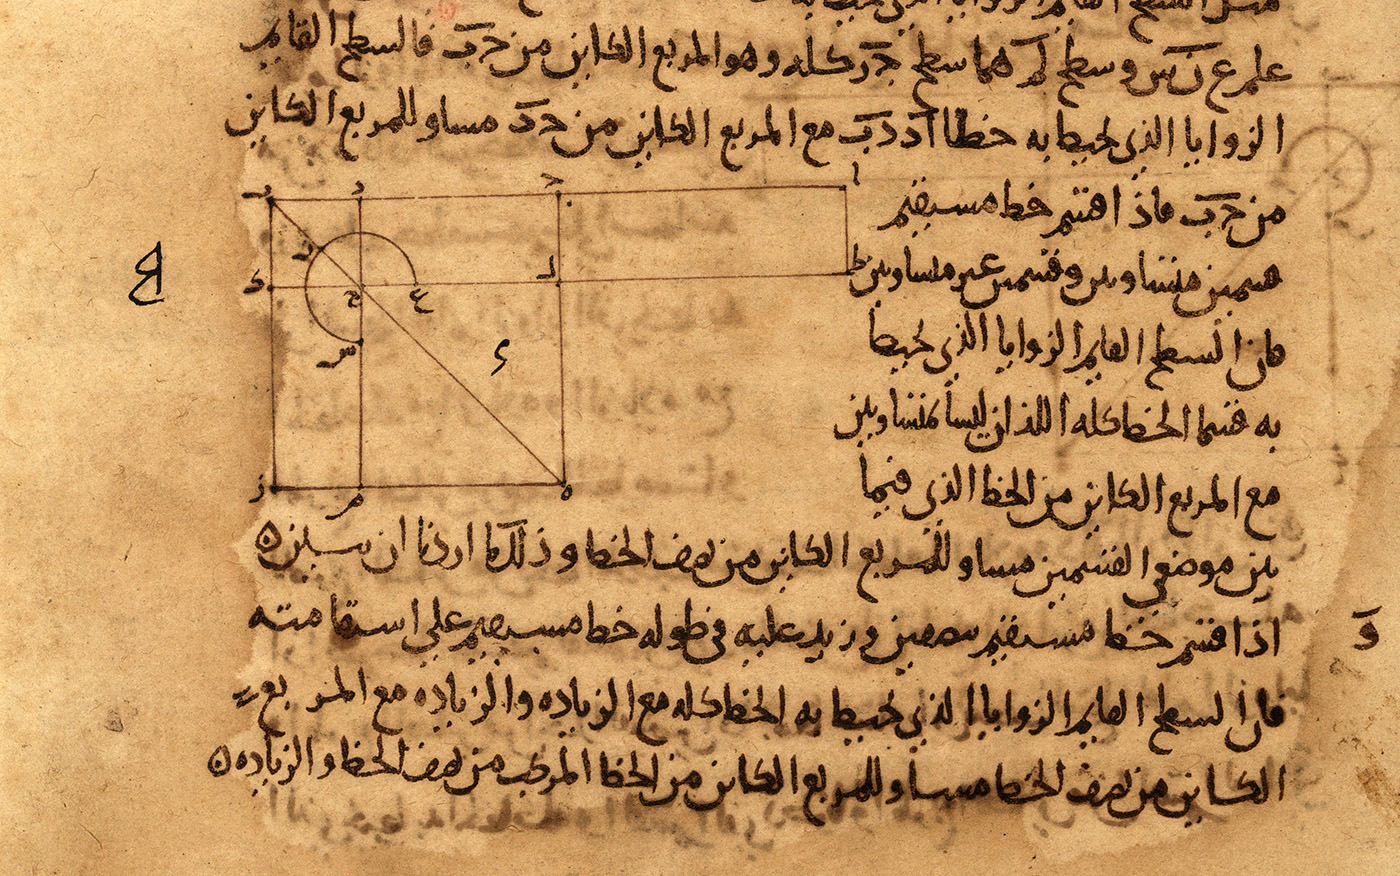 علم ع ن س وسطح لم هما سطح جر كله وهو المربع الكاين من جب فالسطح القايم
الزوايا الذي يحيط به خطا اد دب مع المربع الكاين من جد مساو للمربع الكاين
من جب فاذا قسم خط مستقيم
قسمين متساويين وقسمين غير متساويين
فان السطح القايم الزوايا الذي يحيط
به قسما الخط كله اللذان ليسا متساويين
مع المربع الكاين من الخط الذي فيما
بين موضعي القسمين مساو للمربع الكاين من نصف الخط وذلك ما اردنا ان نبين ه
و
اذا قسم خط مستقيم بنصفين وزيد عليه في طوله خط مستقيم على استقامته
فان السطح القايم الزوايا الذي يحيط به الخط كله مع الزياده والزياده مع المربع
الكاين من نصف الخط مساو للمربع الكاين من الخط المركب من نصف الخط والزياده ه
ب
د
ج
ا
ن
ك
ح
ع
ل
ط
س
ز
م
ه